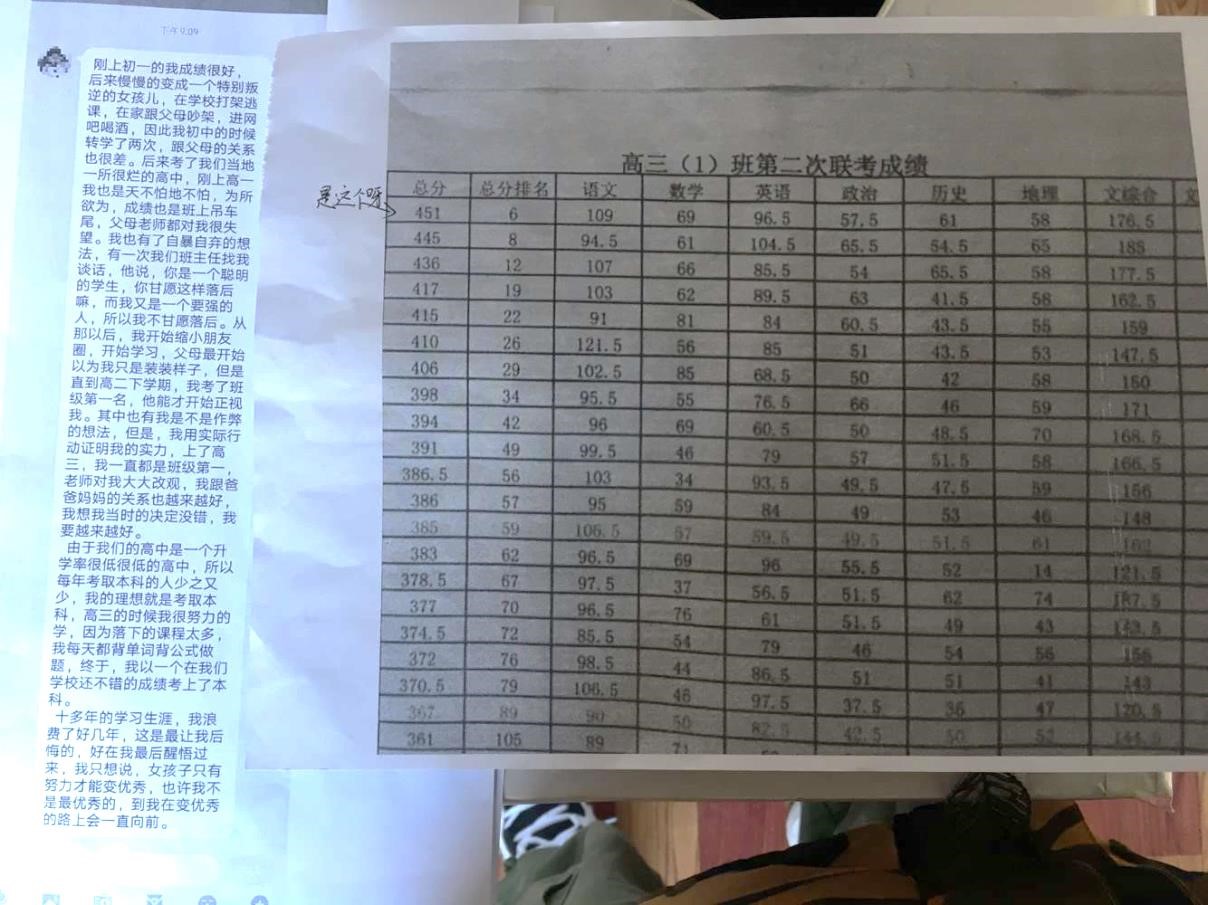 下午9:09
刚上初一的我成绩很好，
后来慢慢的变成一个特别叛
逆的女孩儿，在学校打架逃
课，在家跟父母吵架，进网
吧喝酒，因此我初中的时候
转学了两次，跟父母的关系
也很差。后来考了我们当地
一所很烂的高中，刚上高一
我也是天不怕地不怕，为所
欲为，成绩也是班上吊车
尾，父母老师都对我很失
望。我也有了自暴自弃的想
法，有一次我们班主任找我
谈话，他说，你是一个聪明
的学生，你甘愿这样落后
嘛，而我又是一个要强的
人，所以我不甘愿落后。从
那以后，我开始缩小朋友
圈，开始学习，父母最开始
以为我只是装装样子，但是
直到高二下学期，我考了班
级第一名，他能才开始正视
我。其中也有我是不是作弊
的想法，但是，我用实际行
动证明我的实力，上了高
三，我一直都是班级第一，
老师对我大大改观，我跟爸
爸妈妈的关系也越来越好，
我想我当时的决定没错，我
要越来越好。
由于我们的高中是一个升
学率很低很低的高中，所以
每年考取本科的人少之又
少，我的理想就是考取本
科，高三的时候我很努力的
学，因为落下的课程太多，
我每天都背单词背公式做
题，终于，我以一个在我们
学校还不错的成绩考上了本
科。
十多年的学习生涯，我浪
费了好几年，这是最让我后
悔的，好在我最后醒悟过
来，我只想说，女孩子只有
努力才能变优秀，也许我不
是最优秀的，到我在变优秀
的路上会一直向前。
是这个呀
高三（1）班第二次联考成绩
总分 总分排名 语文 数学 英语 政治 历史 地理 文综合 文
451 6 109 69 96.5 57.5 61 58 176.5
445 8 94.5 61 104.5 65.5 54.5 65 185
436 12 107 66 85.5 54 65.5 58 177.5
417 19 103 62 89.5 63 41.5 58 162.5
415 22 91 81 84 60.5 43.5 55 159
410 26 121.5 56 85 51 43.5 53 147.5
406 29 102.5 85 68.5 50 42 58 150
398 34 95.5 55 76.5 66 46 59 171
394 42 96 69 60.5 50 48.5 70 168.5
391 49 99.5 46 79 57 51.5 58 166.5
386.5 56 103 34 93.5 49.5 47.5 59 156
386 57 95 59 84 49 53 46 148
385 59 106.5 57 59.5 49.5 51.5 61 162
383 62 96.5 69 96 55.5 52 14 121.5
378.5 67 97.5 37 56.5 51.5 62 74 187.5
377 70 96.5 76 61 51.5 49 43 143.5
374.5 72 85.5 54 79 46 54 56 156
372 76 98.5 44 86.5 51 51 41 143
370.5 79 106.5 46 97.5 37.5 36 47 120.5
367 89 90 50 82.5 42.5 50 52 144.5
361 105 89 71